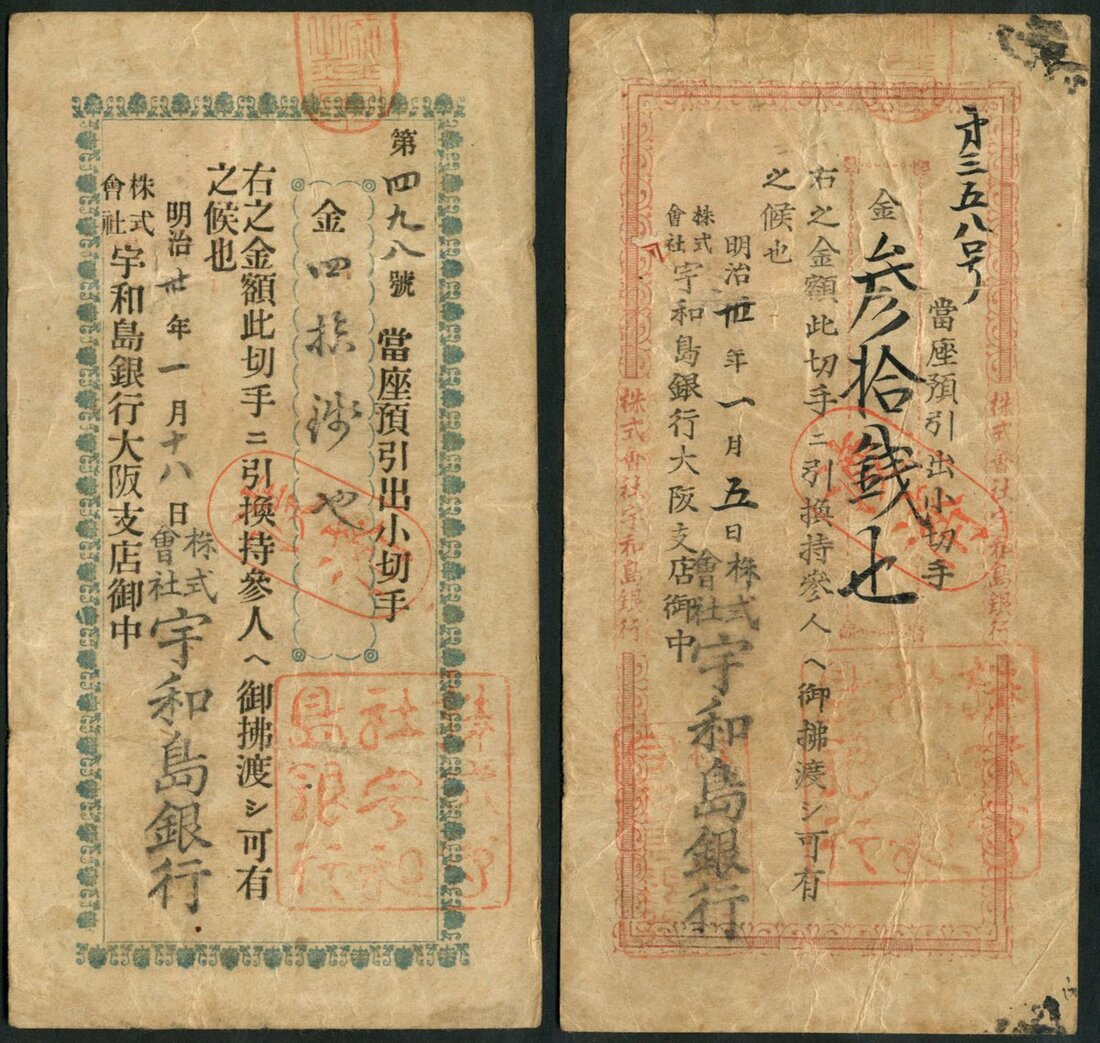 第四九八號
當座預引出小切手
金四拾錢也
右之金額此切手ニ引換持參人ヘ御拂渡シ可有
之候也
明治廿年一月十八日
株式會社宇和島銀行
株式會社宇和島銀行大阪支店御中
社宇和
島銀行
第三五八号
當座預引出小切手
金參拾錢也
右之金額此切手ニ引換持參人ヘ御拂渡シ可有
之候也
明治卅年一月五日
株式會社宇和島銀行
株式會社宇和島銀行大阪支店御中
株式會社宇和島銀行
株式會社宇和島銀行